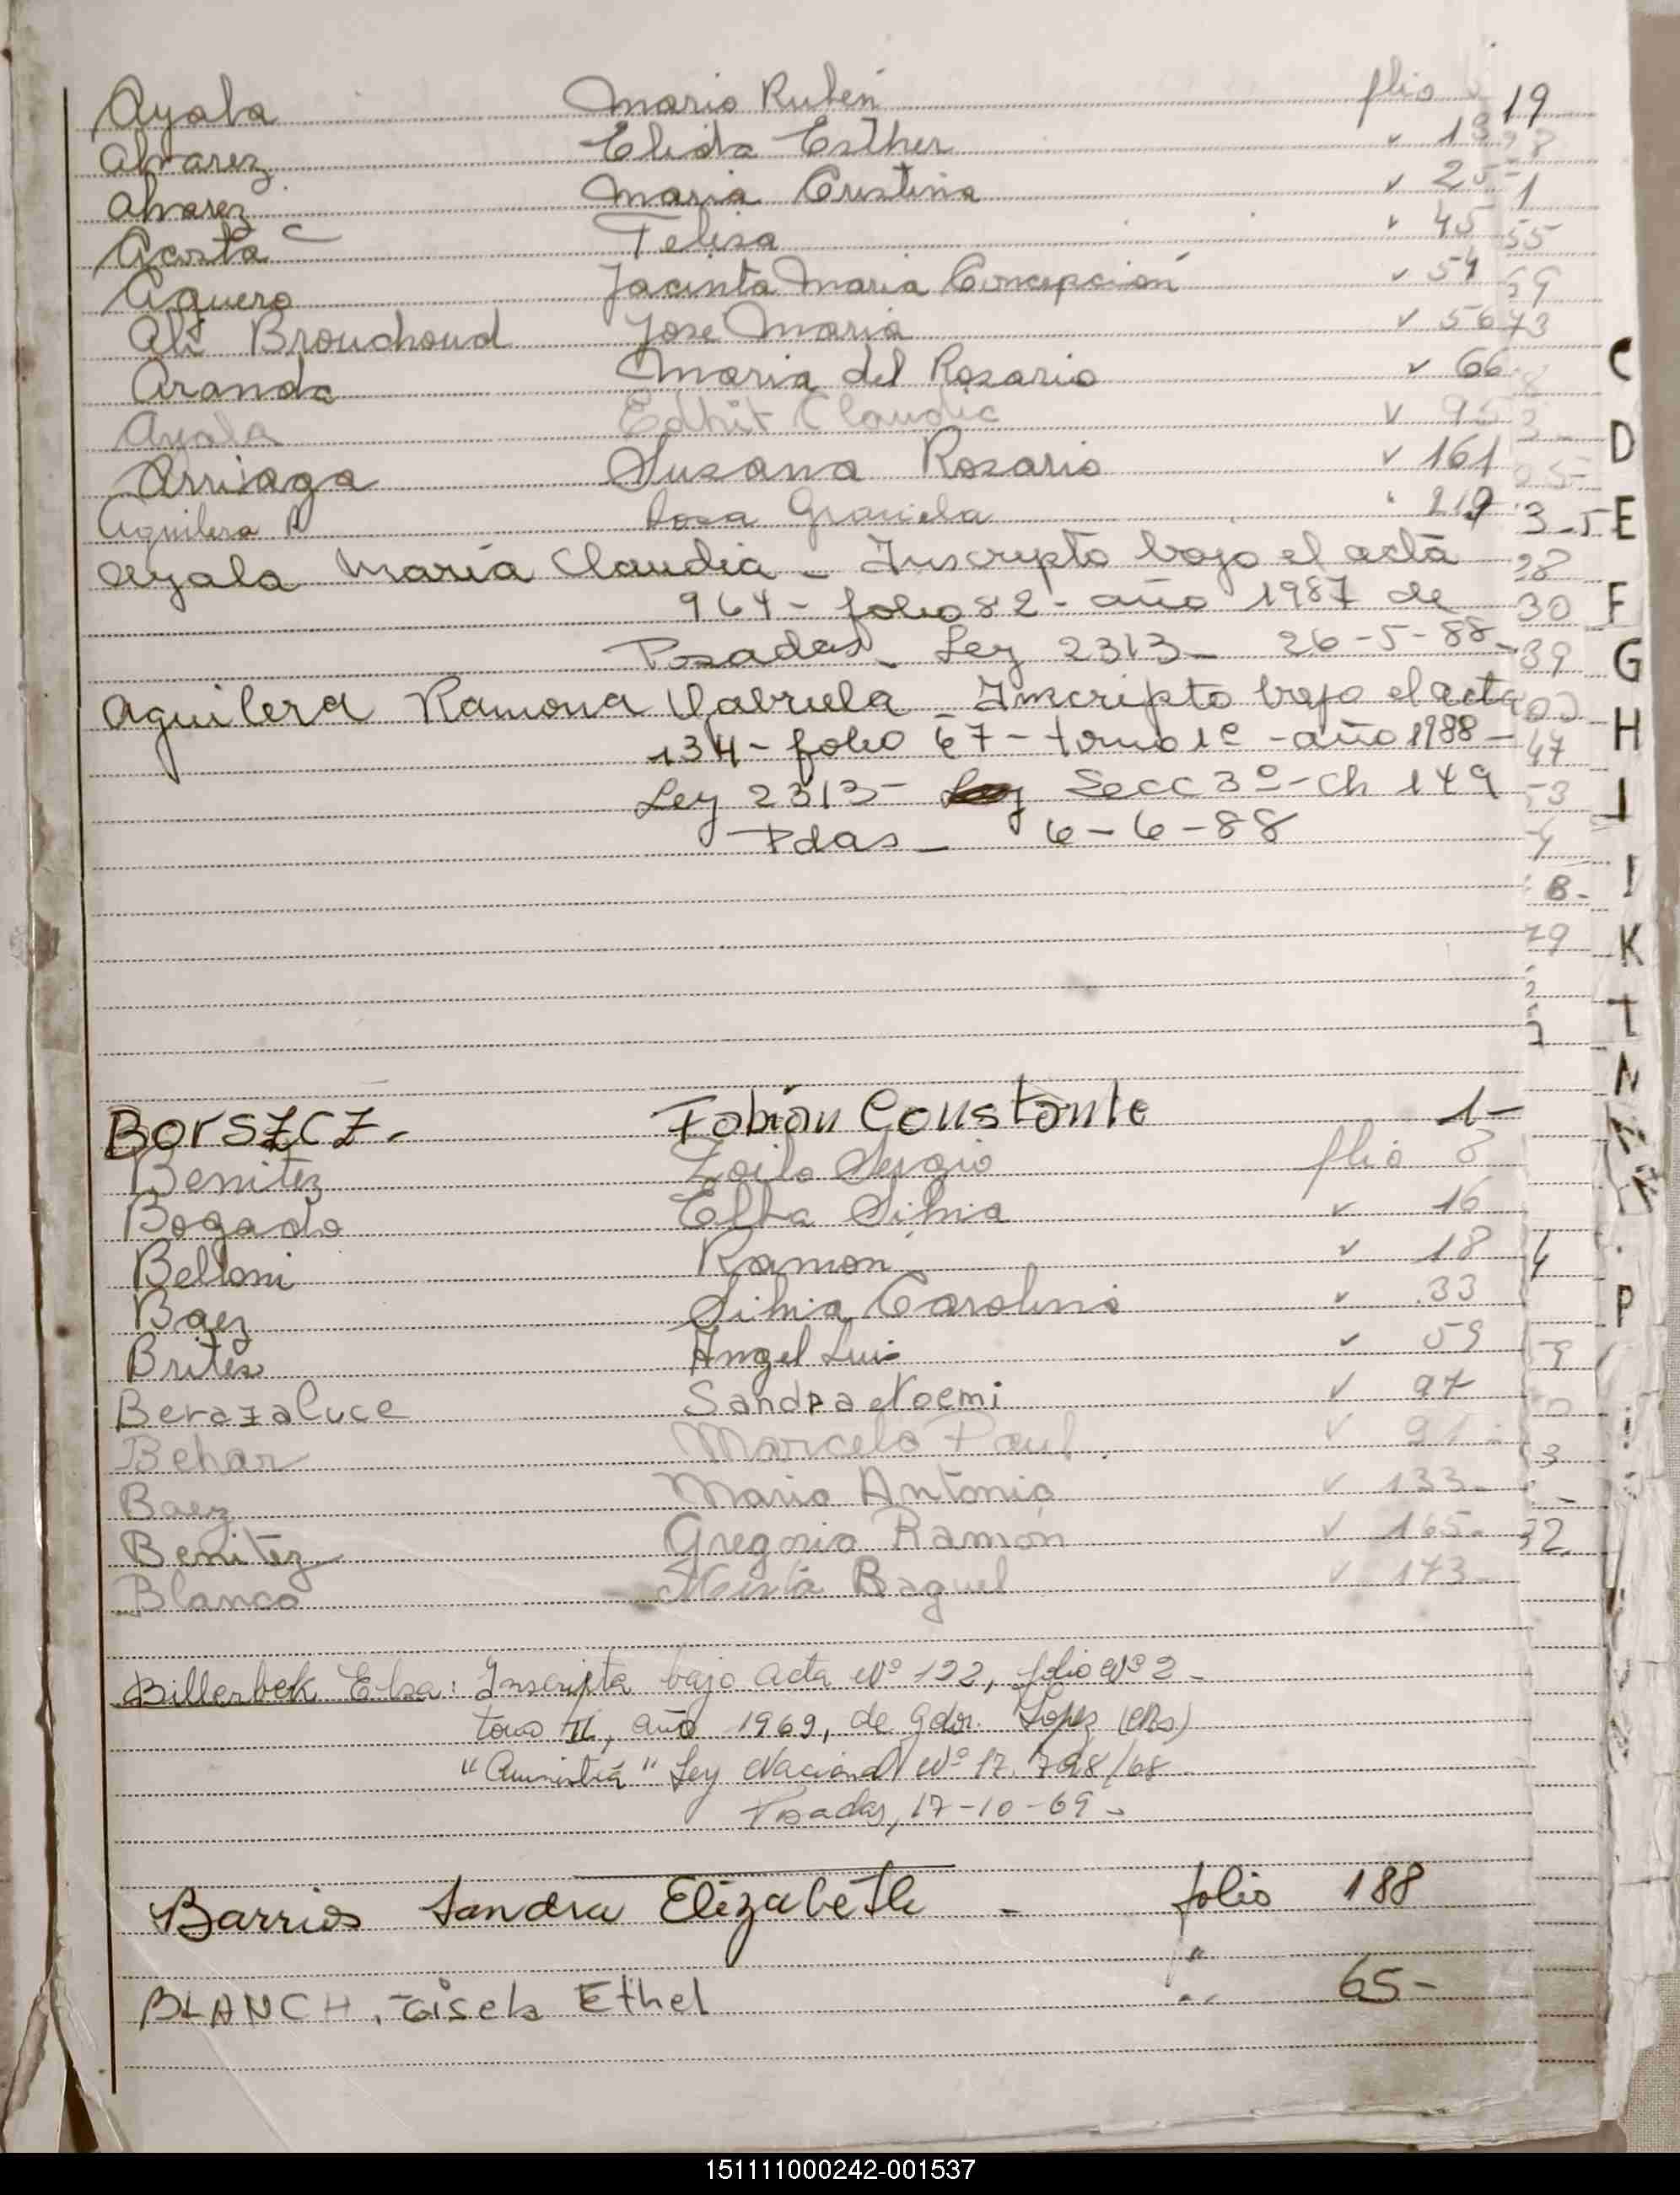 Ayala Mario Rubén folio
Alvarez Elida Esther 18
Alvarez Maria Cristina 25
Acosta Felisa 45
Aguero Jacinta Maria Concepción 54
Ali Brouchoud Jose Maria 56
Aranda Maria del Rosario 66
Ayala Edhit Claudia 95
Arriaga Susana Rosario 161
Aguilera Rosa Graciela 219
Ayala María Claudia - Inscripto bajo el acta
964 - folio 82 - año 1987 de
Posadas - Ley 2313 - 26-5-88 -
Aguilera Ramona Gabriela - Inscripto bajo el acta
134 - folio 67 - tomo 1º - año 1988 -
Ley 2313 - Secc 3º - Ch 149
Pdas - 6-6-88
BorszCz - Fabián Constante 1-
Benitez Zoilo Sergio folio 8
Bogado Elba Silvia 16
Belloni Ramón 18
Baez Silvia Carolina 33
Brites Angel Luis 59
Berazaluce Sandra Noemi 97
Behar Marcelo Paul 91-
Baez Mario Antonio 133-
Benitez Gregorio Ramón 165-
Blanco Raquel 173-
Billerbek Elsa: Inscripta bajo acta Nº 122, folio Nº 2 -
tomo II, año 1969, de Gdor. Lopez
"Amnistia" Ley Nacional Nº 17.798/68 -
Posadas, 17-10-69 -
Barrios Sandra Elizabeth - folio 188
BLANCH, Gisela Ethel " 65-
C
D
E
F
G
H
J
I
K
L
N
P
151111000242-001537